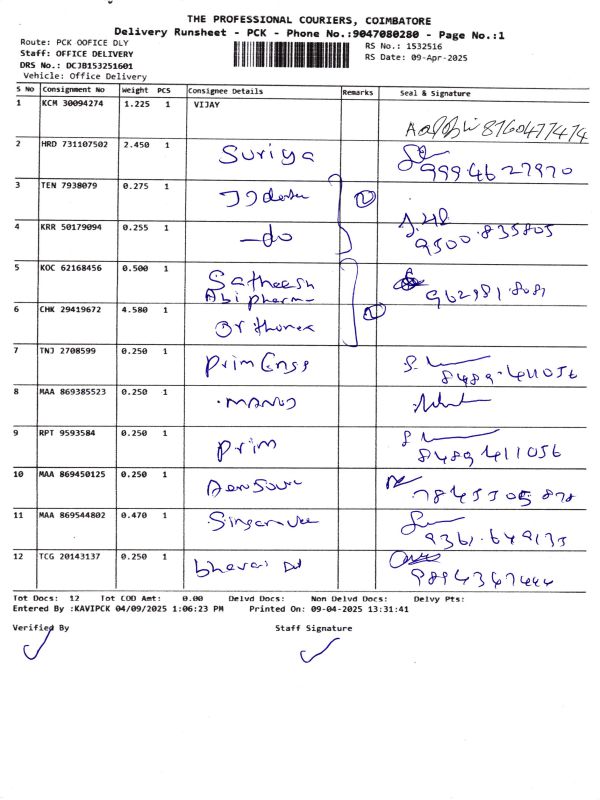 THE PROFESSIONAL COURIERS, COIMBATORE
Delivery Runsheet - PCK - Phone No.:9047080280 - Page No.:1
Route: PCK OOFICE DLY
RS No.: 1532516
Staff: OFFICE DELIVERY
RS Date: 09-Apr-2025
DRS No.: DCJB153251601
Vehicle: Office Delivery
S No Consignment No Weight PCS Consignee Details Remarks Seal & Signature
1 KCM 30094274 1.225 1 VIJAY 8760477474
2 HRD 731107502 2.450 1 Suriya 9994627970
3 TEN 7938079 0.275 1
4 KRR 50179094 0.255 1 -do 9500.835805
5 KOC 62168456 0.500 1 Satheesh
Abi pharma
6 CHK 29419672 4.580 1
7 TNJ 2708599 0.250 1 8489.411056
8 MAA 869385523 0.250 1
9 RPT 9593584 0.250 1 prim 8489411056
10 MAA 869450125 0.250 1
11 MAA 869544802 0.470 1
12 TCG 20143137 0.250 1 9894367444
Tot Docs: 12 Tot COD Amt: 0.00 Delvd Docs: Non Delvd Docs: Delvy Pts:
Entered By :KAVIPCK 04/09/2025 1:06:23 PM Printed On: 09-04-2025 13:31:41
Verified By Staff Signature